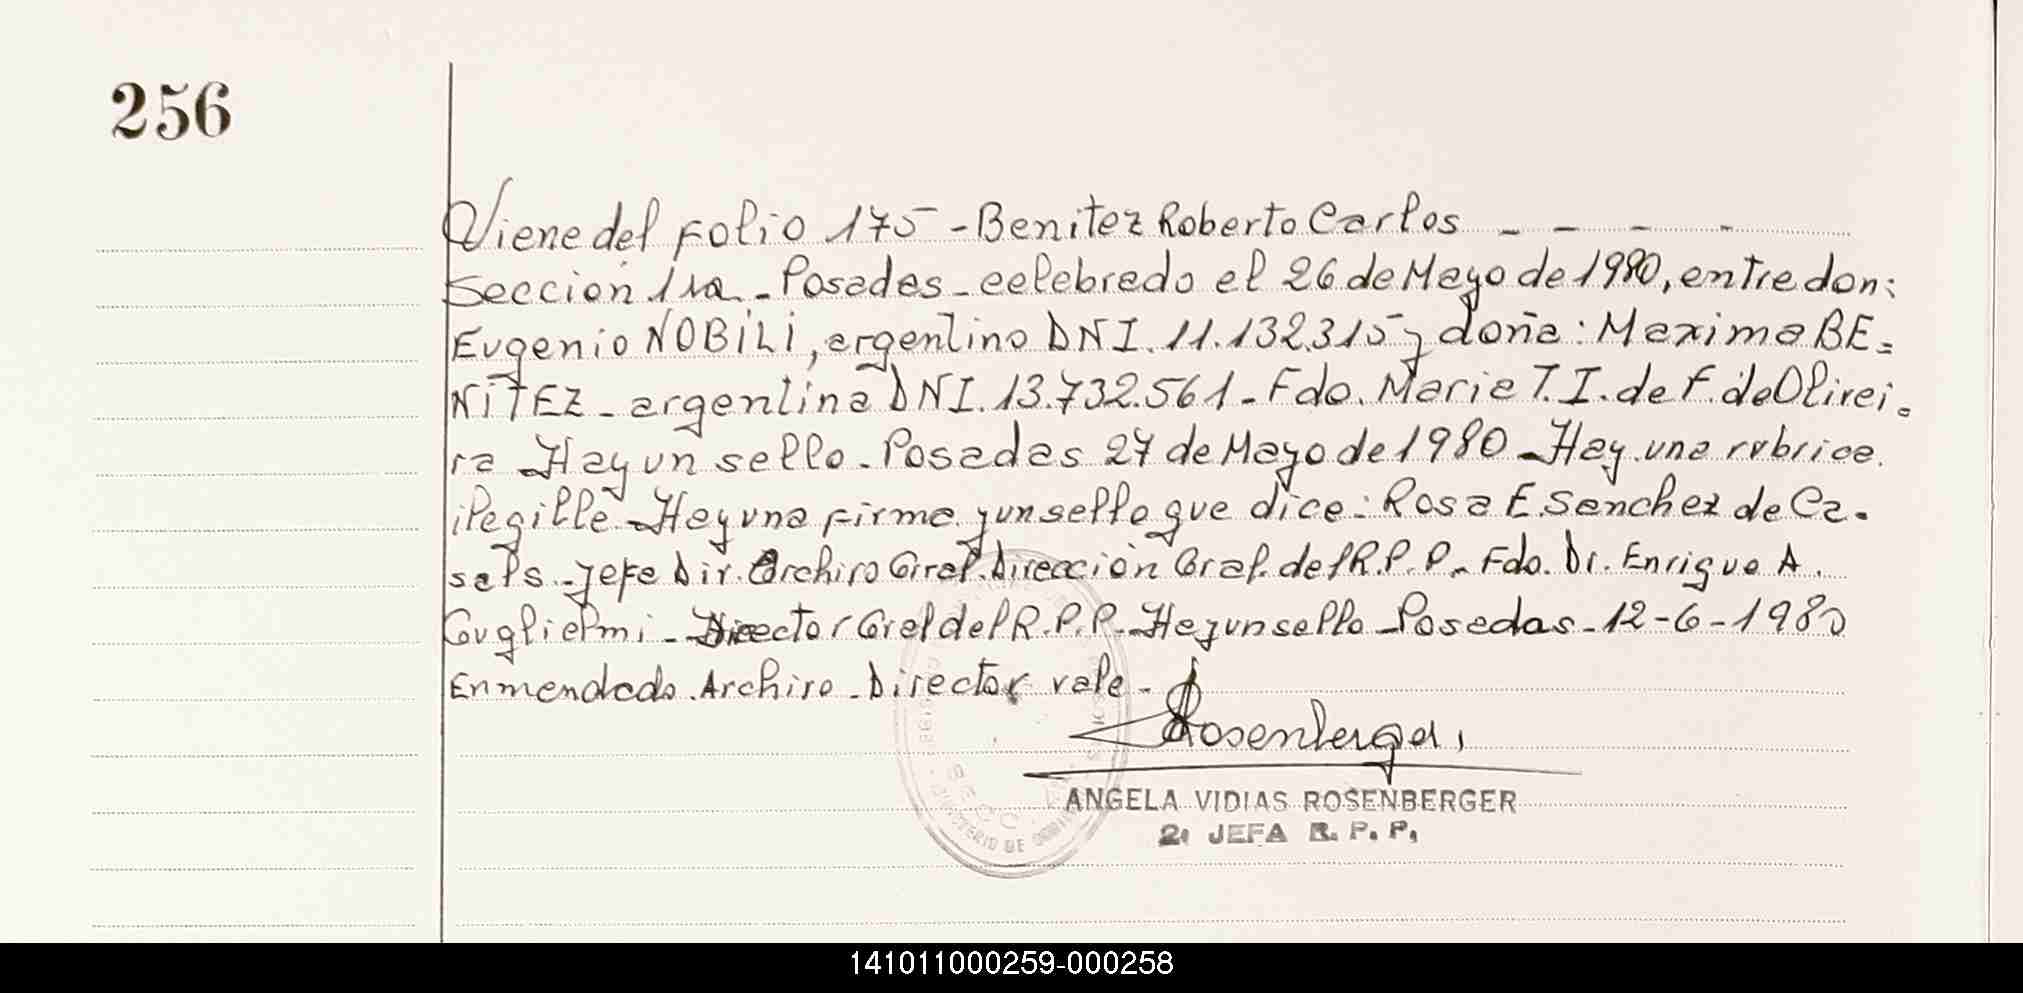 256
Viene del Folio 175 - Benitez Roberto Carlos - - - -
Sección 1ra - Posadas - celebrado el 26 de Mayo de 1980, entre don:
Eugenio NOBiLi, argentino DNI. 11.132.315 y doña: Maxima BE=
NiTEZ - argentina DNI. 13.732.561 - Fdo. Maria T. I. de F. de Olivei=
ra Hay un sello - Posadas 27 de Mayo de 1980 - Hay una rubrica
ilegille - Hay una firma y un sello que dice: Rosa E. Sanchez de Ca-
sals - Jefe Dir. Archivo Gral. Dirección Gral. del R.P.P. - Fdo. Dr. Enrique A.
Guglielmi - Director Gral del R.P.P. - Hay un sello - Posadas - 12-6-1980
Enmendado. Archivo - Director vale -
Rosenberger
ANGELA VIDIAS ROSENBERGER
2. JEFA R. P. P.
141011000259-000258